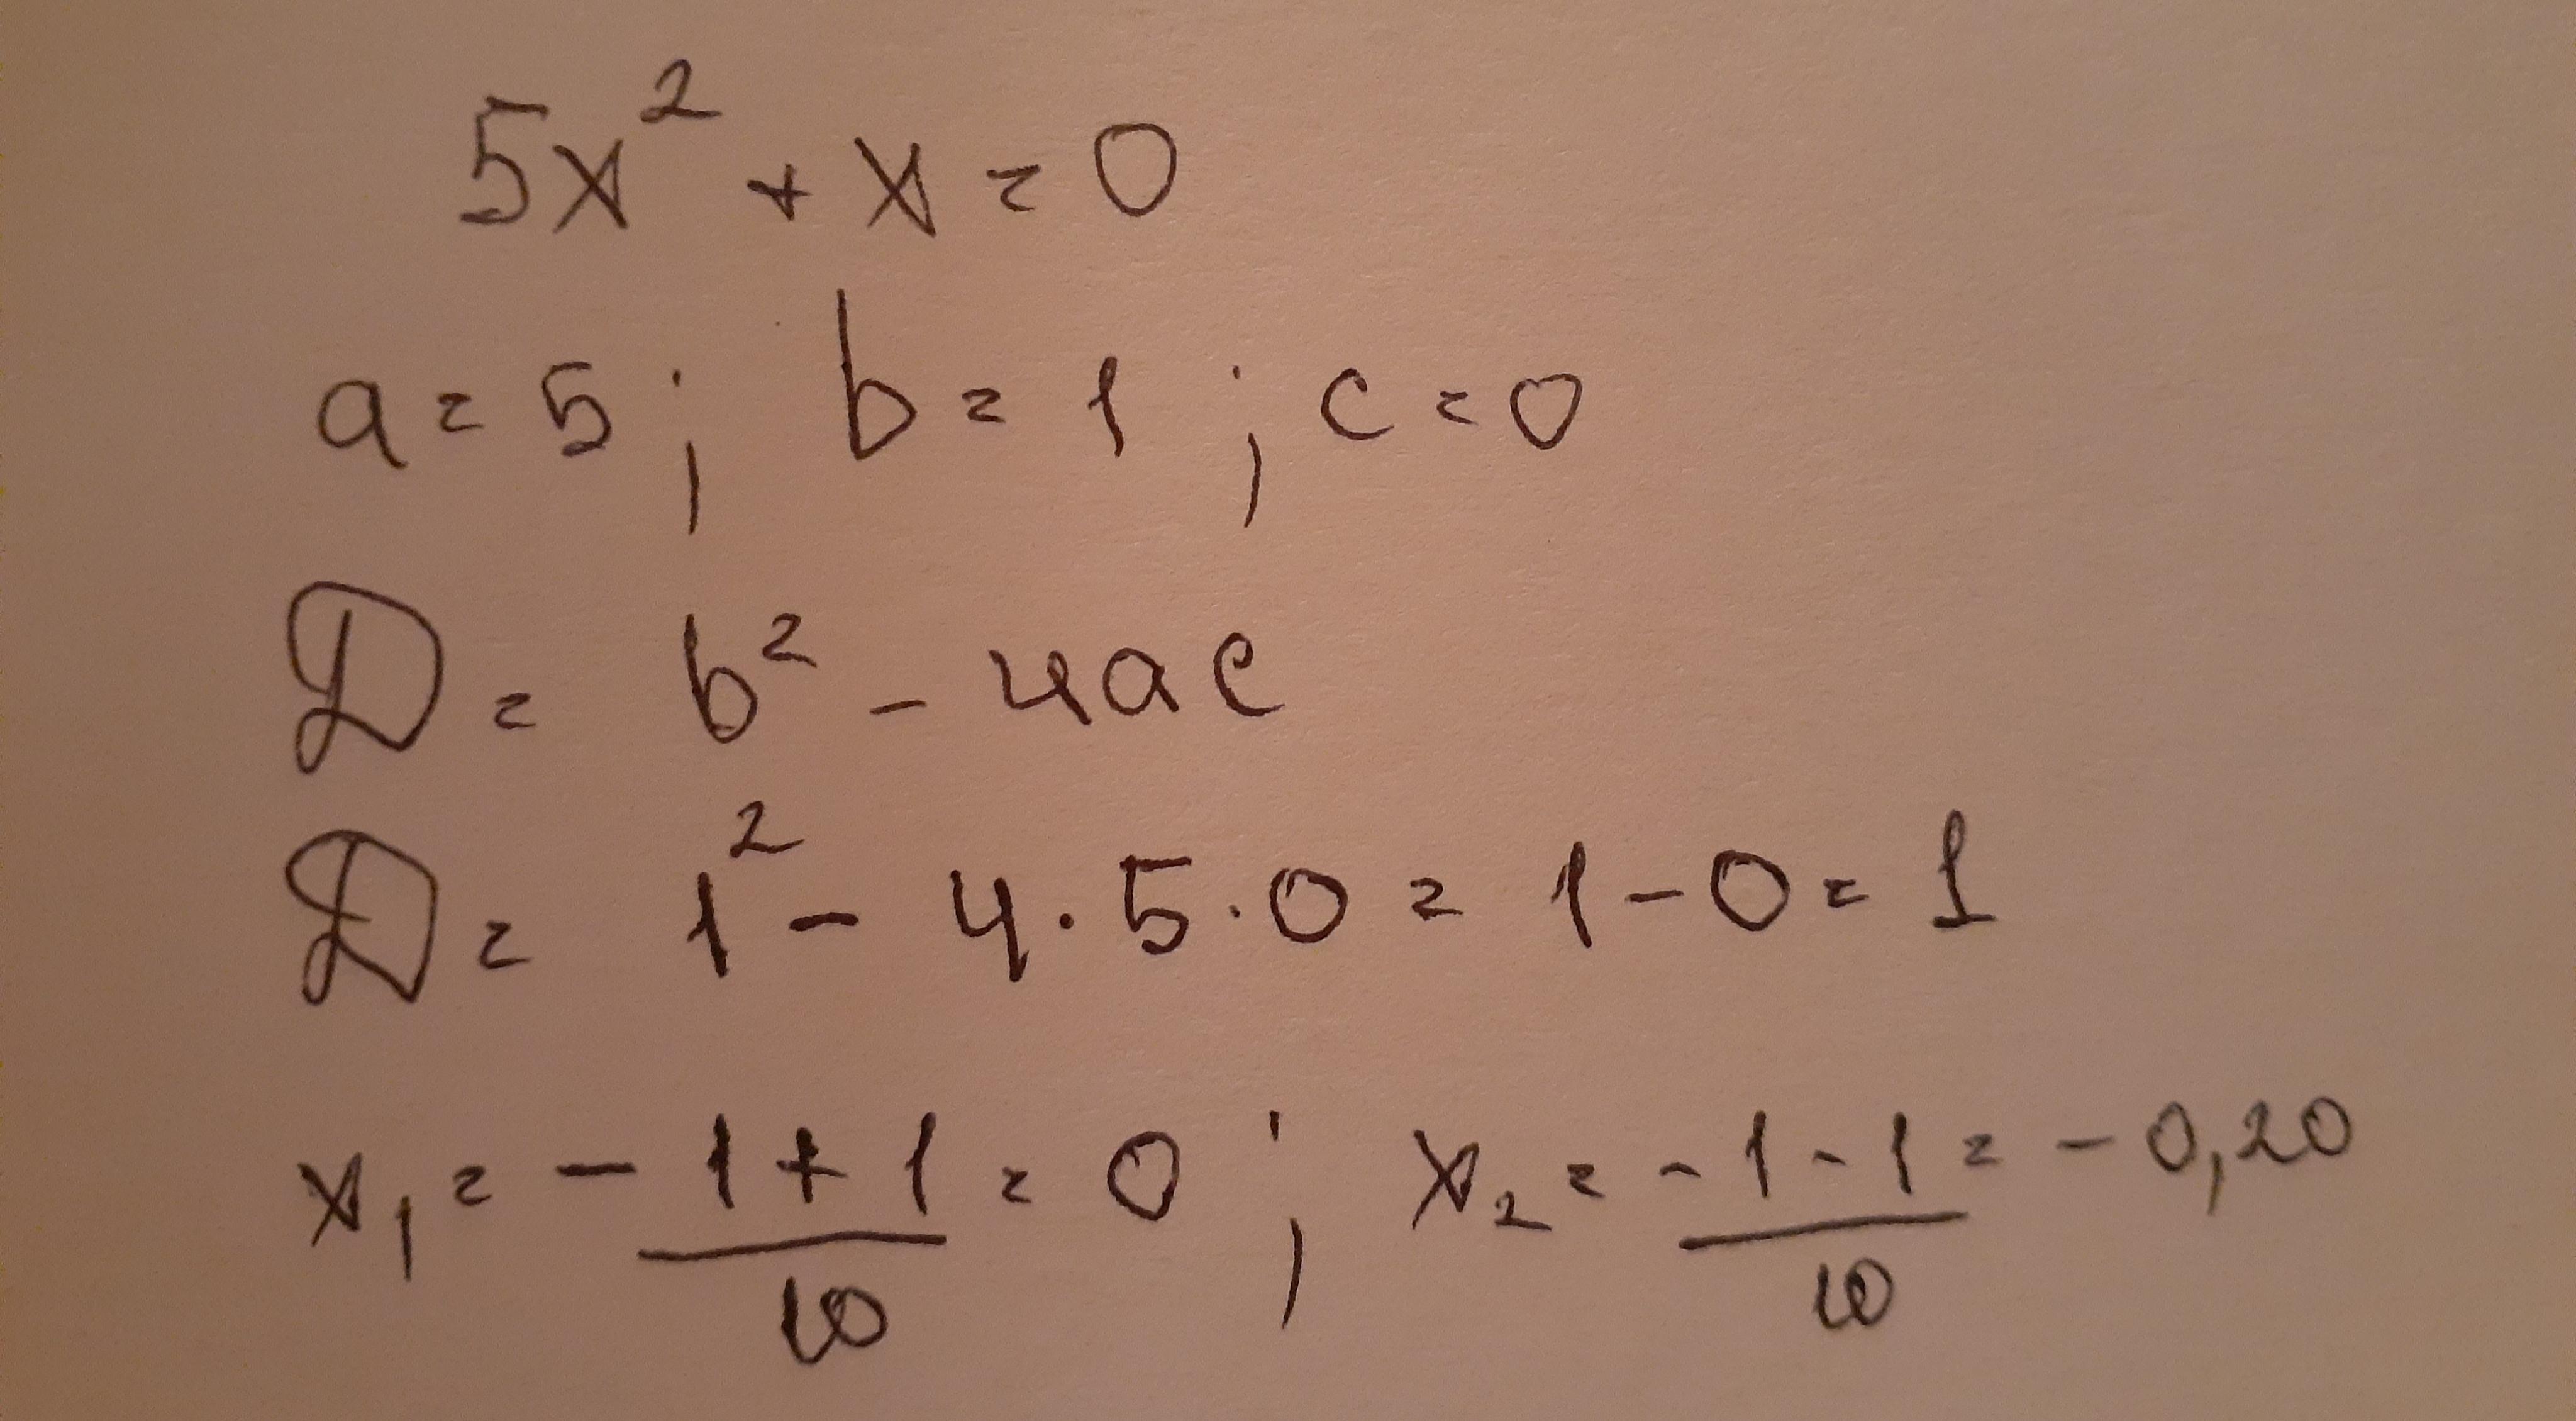 5x² + x = 0
a = 5 ; b = 1 ; c = 0
D = b² - 4ac
D = 1² - 4 · 5 · 0 = 1 - 0 = 1
x₁ = -1+1/10 = 0 ; x₂ = -1-1/10 = -0,20